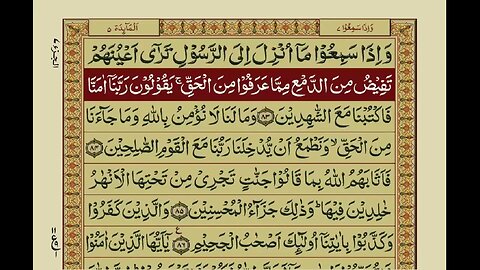 وَاِذَا سَمِعُوْا ۷
اَلْمَآئِدَة ۵
وَاِذَا سَمِعُوْا مَاۤ اُنْزِلَ اِلَى الرَّسُوْلِ تَرٰۤى اَعْيُنَهُمْ
تَفِيْضُ مِنَ الدَّمْعِ مِمَّا عَرَفُوْا مِنَ الْحَقِّ ۚ يَقُوْلُوْنَ رَبَّنَاۤ اٰمَنَّا
فَاكْتُبْنَا مَعَ الشّٰهِدِيْنَ ۸۳ وَمَا لَنَا لَا نُؤْمِنُ بِاللّٰهِ وَمَا جَآءَنَا
مِنَ الْحَقِّ ۙ وَنَطْمَعُ اَنْ يُّدْخِلَنَا رَبُّنَا مَعَ الْقَوْمِ الصّٰلِحِيْنَ ۸۴
فَاَثَابَهُمُ اللّٰهُ بِمَا قَالُوْا جَنّٰتٍ تَجْرِيْ مِنْ تَحْتِهَا الْاَنْهٰرُ
خٰلِدِيْنَ فِيْهَا ؕ وَذٰلِكَ جَزَآءُ الْمُحْسِنِيْنَ ۸۵ وَالَّذِيْنَ كَفَرُوْا
وَكَذَّبُوْا بِاٰيٰتِنَاۤ اُولٰٓئِكَ اَصْحٰبُ الْجَحِيْمِ ۸۶ ع يٰۤاَيُّهَا الَّذِيْنَ اٰمَنُوْا